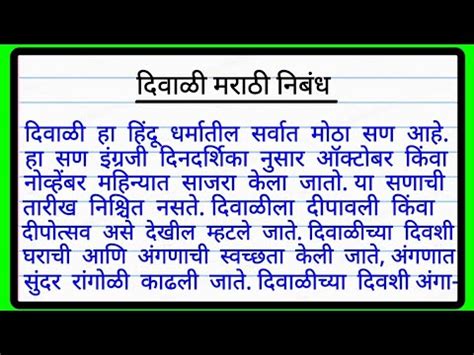 दिवाळी मराठी निबंध
दिवाळी हा हिंदू धर्मातील सर्वात मोठा सण आहे.
हा सण इंग्रजी दिनदर्शिका नुसार ऑक्टोबर किंवा
नोव्हेंबर महिन्यात साजरा केला जातो. या सणाची
तारीख निश्चित नसते. दिवाळीला दीपावली किंवा
दीपोत्सव असे देखील म्हटले जाते. दिवाळीच्या दिवशी
घराची आणि अंगणाची स्वच्छता केली जाते, अंगणात
सुंदर रांगोळी काढली जाते. दिवाळीच्या दिवशी अंगा-